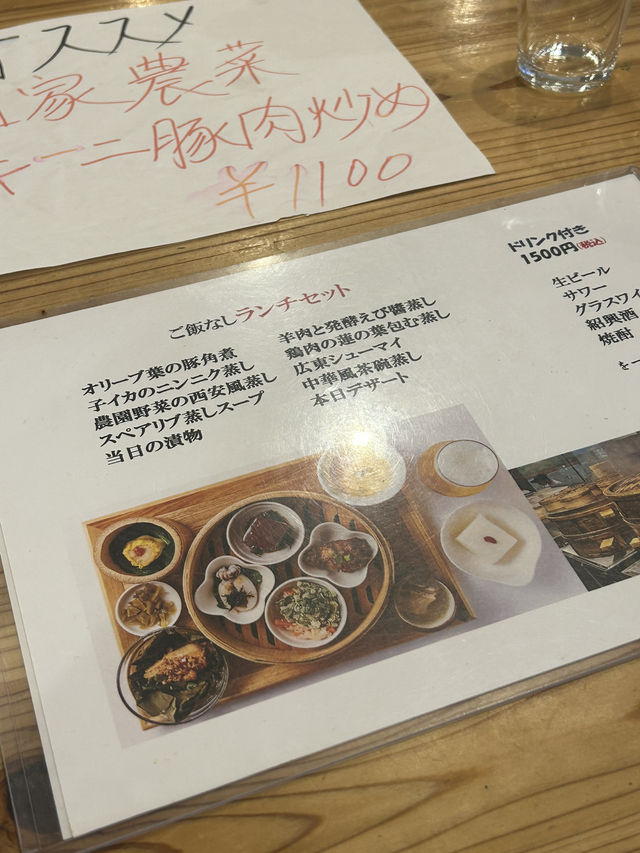 オススメ
家農菜
ーニ豚肉炒め
¥1100
ご飯なしランチセット
オリーブ葉の豚角煮
子イカのニンニク蒸し
農園野菜の西安風蒸し
スペアリブ蒸しスープ
当日の漬物
羊肉と発酵えび醬蒸し
鶏肉の蓮の葉包む蒸し
広東シューマイ
中華風茶碗蒸し
本日デザート
ドリンク付き
1500円(税込)
生ビール
サワー
グラスワイ
紹興酒
焼酎
を一